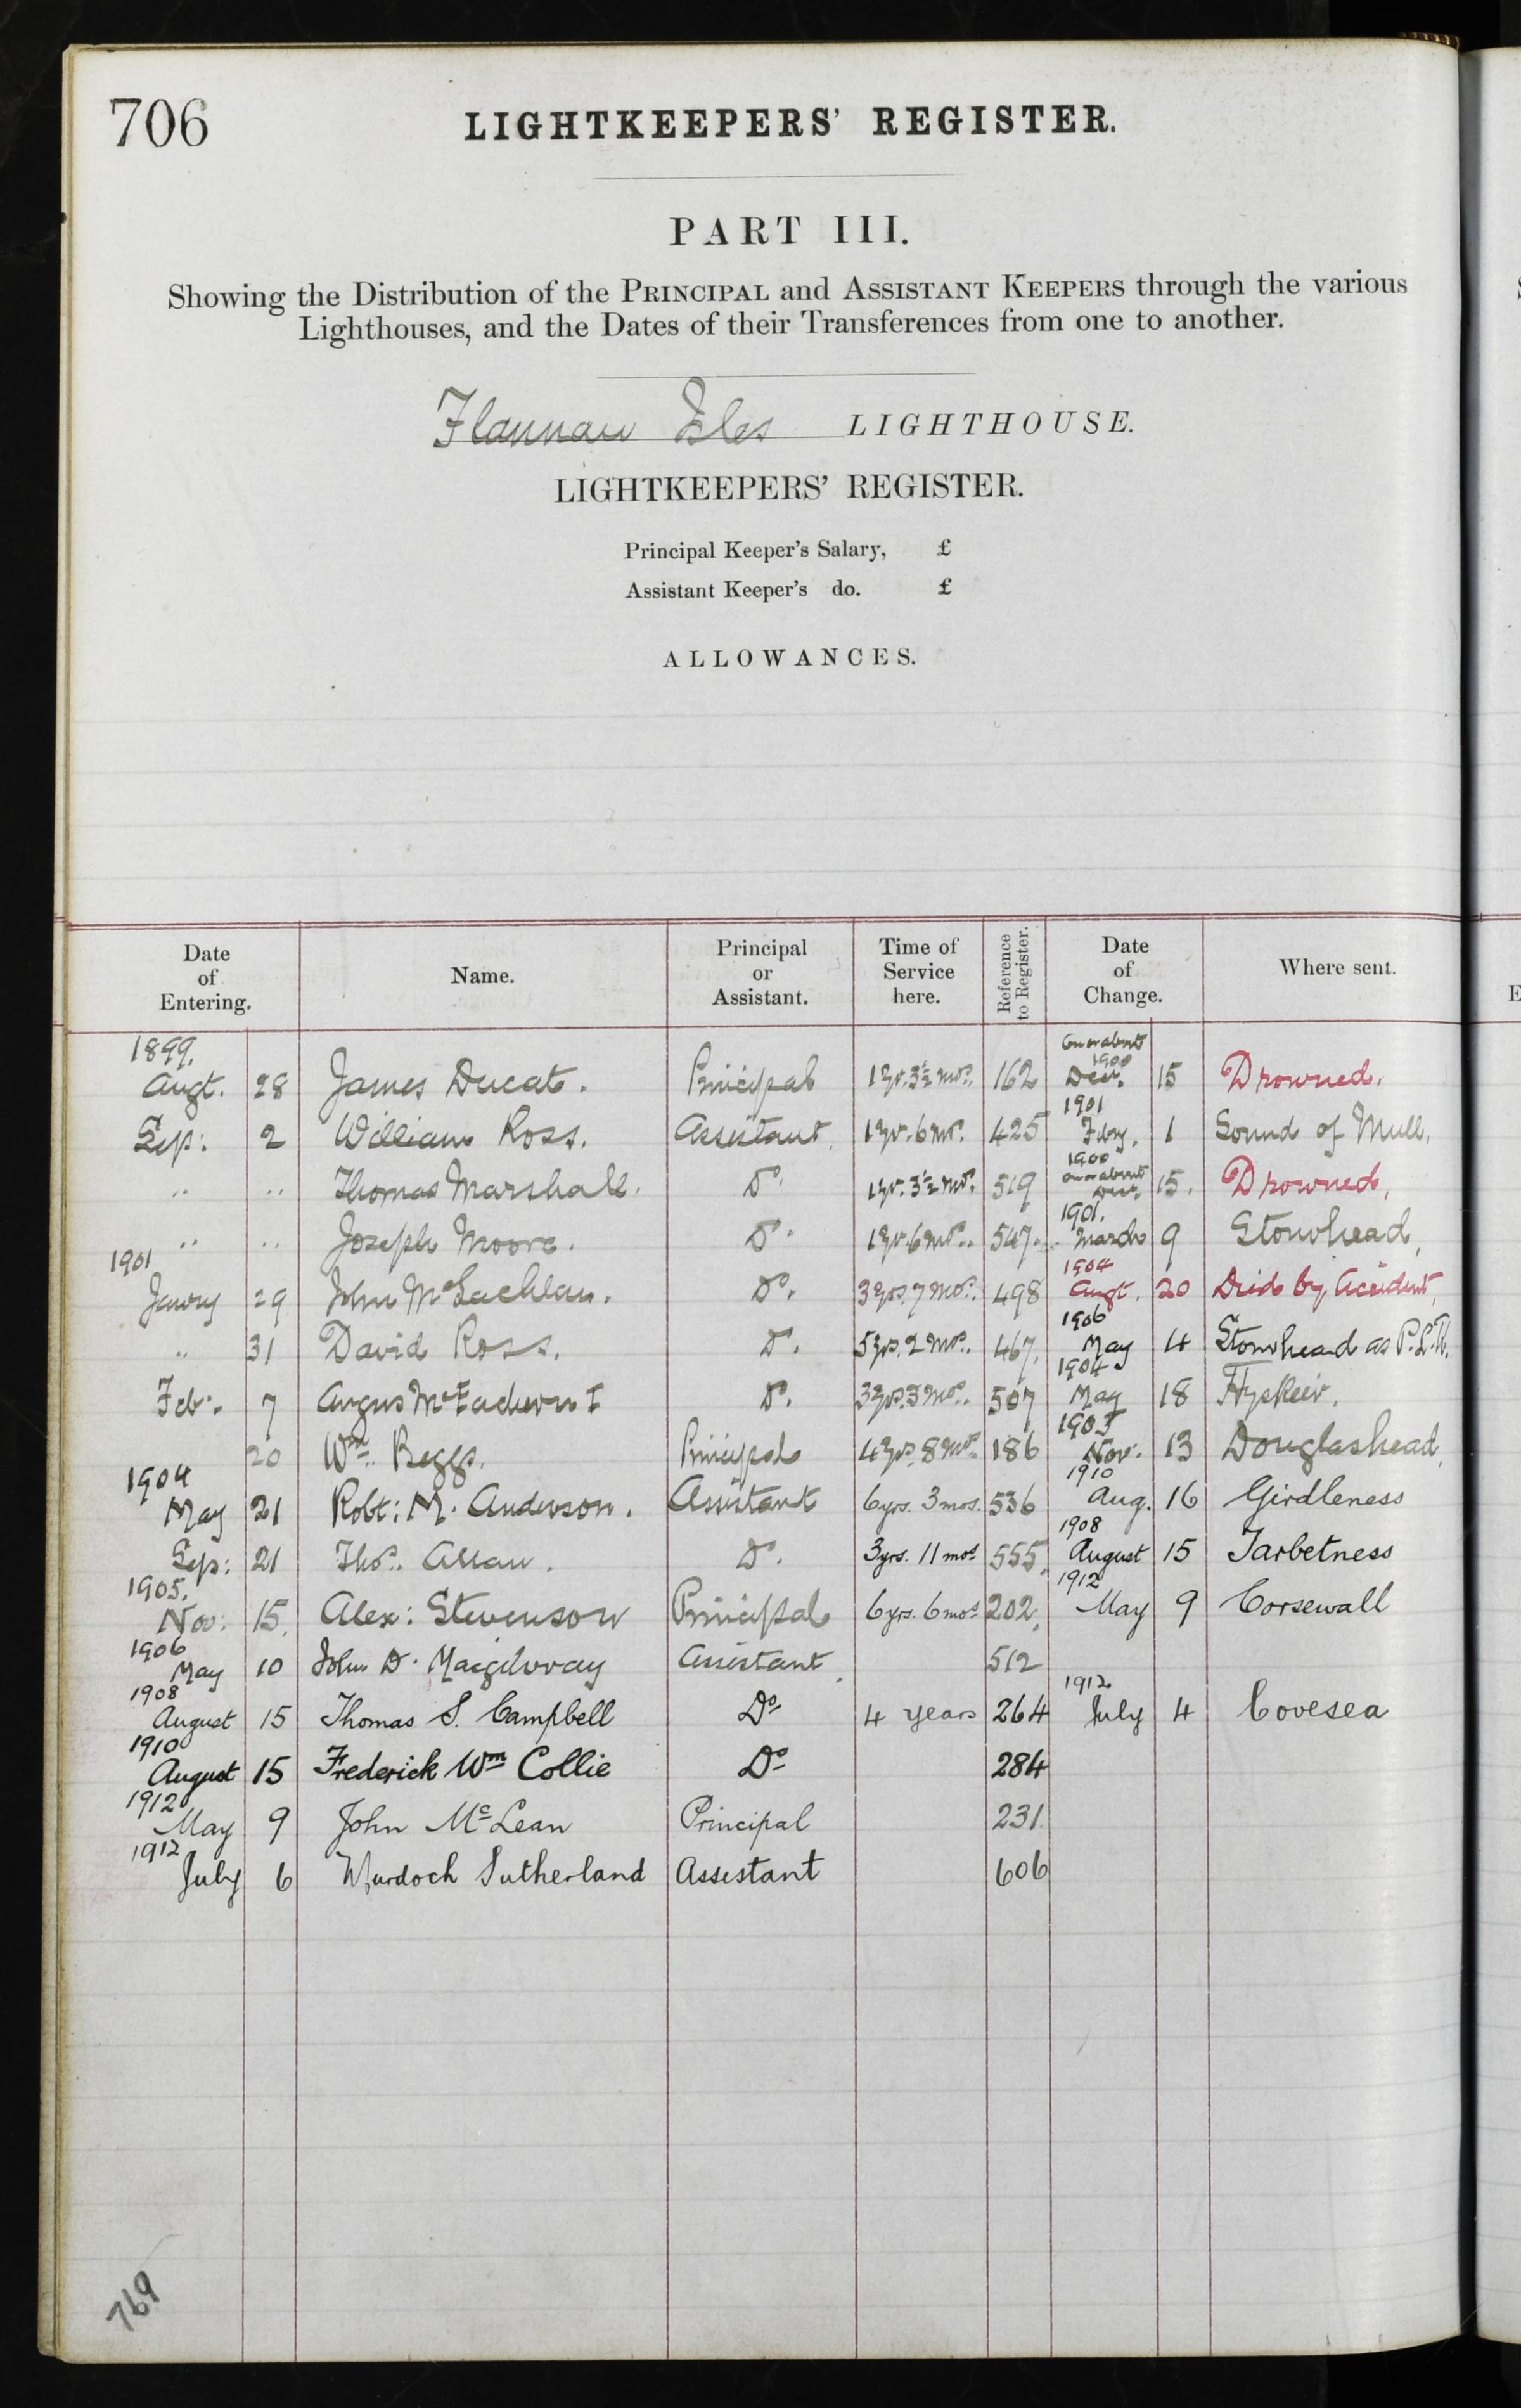 706
LIGHTKEEPERS' REGISTER.
PART III.
Showing the Distribution of the PRINCIPAL and ASSISTANT KEEPERS through the various
Lighthouses, and the Dates of their Transferences from one to another.
Flannan Isles LIGHTHOUSE.
LIGHTKEEPERS' REGISTER.
Principal Keeper's Salary, £
Assistant Keeper's do. £
ALLOWANCES.
Date of Entering. Name. Principal or Assistant. Time of Service here. Reference to Register. Date of Change. Where sent.
1899. On or about 1900
Augt. 28 James Ducat. Principal 1 yr. 3½ mos. 162 Decr. 15 Drowned.
1901
Sep: 2 William Ross. Assistant. 1 yr. 6 mos. 425 Feby. 1 Sound of Mull.
1900 on or about
" " Thomas Marshall. Do. 1 yr. 3½ mos. 519 Decr. 15. Drowned.
1901.
" " Joseph Moore. Do. 1 yr. 6 mos. 547. March 9 Stourhead.
1901 1904
Janry 29 John McLachlan. Do. 3 yrs. 7 mos. 498 Augt. 20 Died by Accident.
1906
" 31 David Ross. Do. 5 yrs. 2 mos. 467. May 4 Stourhead as P.L.K.
1904
Feb. 7 Angus McEachern I Do. 3 yrs. 3 mos. 507 May 18 Hyskeir.
1905
20 Wm. Beggs. Principal 4 yrs. 8 mos. 186 Nov. 13 Douglashead.
1904 1910
May 21 Robt: M. Anderson. Assistant 6 yrs. 3 mos. 536 Aug. 16 Girdleness
1908
Sep: 21 Thos. Allan. Do. 3 yrs. 11 mos 555. August 15 Tarbetness
1905. 1912
Nov: 15. Alex: Stevenson Principal 6 yrs. 6 mos 202. May 9 Corsewall
1906
May 10 John D. Macgilvray Assistant. 512
1908 1912
August 15 Thomas S. Campbell Do 4 years 264 July 4 Covesea
1910
August 15 Frederick Wm Collie Do 284
1912
May 9 John McLean Principal 231.
1912
July 6 Murdoch Sutherland Assistant 606
769